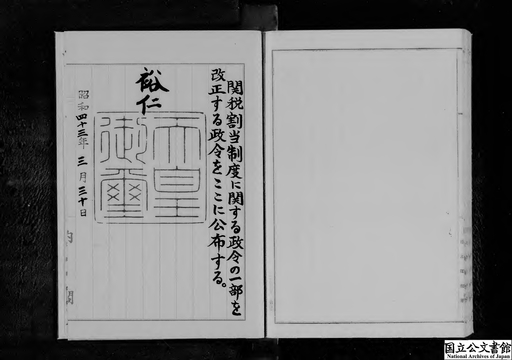 関税割当制度に関する政令の一部を
改正する政令をここに公布する。
裕仁
天皇
御璽
昭和四十三年三月三十日
国立公文書館
National Archives of Japan